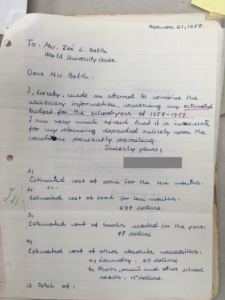 September 21, 1958.
To: Mrs. Zoë L.
World University Service.
Dear Mrs.
I, hereby, made an attempt to combine the
necessary information, concerning my estimated
budget for the school-year of 1958-1959.
I am very much afraid that it is inaccurate
for my planning depended entirely upon the
conditions presently prevailing.
Sincerely yours,
1,
Estimated cost of room for the ten months:
2,
Estimated cost of board for ten months:
dollars.
3,
Estimated cost of books needed for the year:
dollars
4,
Estimated cost of other absolute necessities:
a, Laundry: 60 dollars
b, Paper, pencil and other school
needs: 15 dollars.
A Total of: